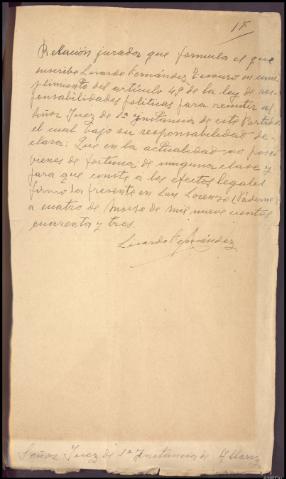 18
Relación jurada que formula el que
suscribe Lisardo Fernández en cum
plimiento del artículo 49 de la Ley de res
ponsabilidades políticas para remitir al
Señor Juez de 1ª Instancia de este Partido
el cual bajo su responsabilidad de
clara: Que en la actualidad no posee
bienes de fortuna de ninguna clase y
para que conste a los efectos legales
firmo la presente en San Lorenzo
a cuatro de Marzo de mil nueve cientos
cuarenta y tres.
Lisardo Fernández
Señor Juez de 1ª Instancia de